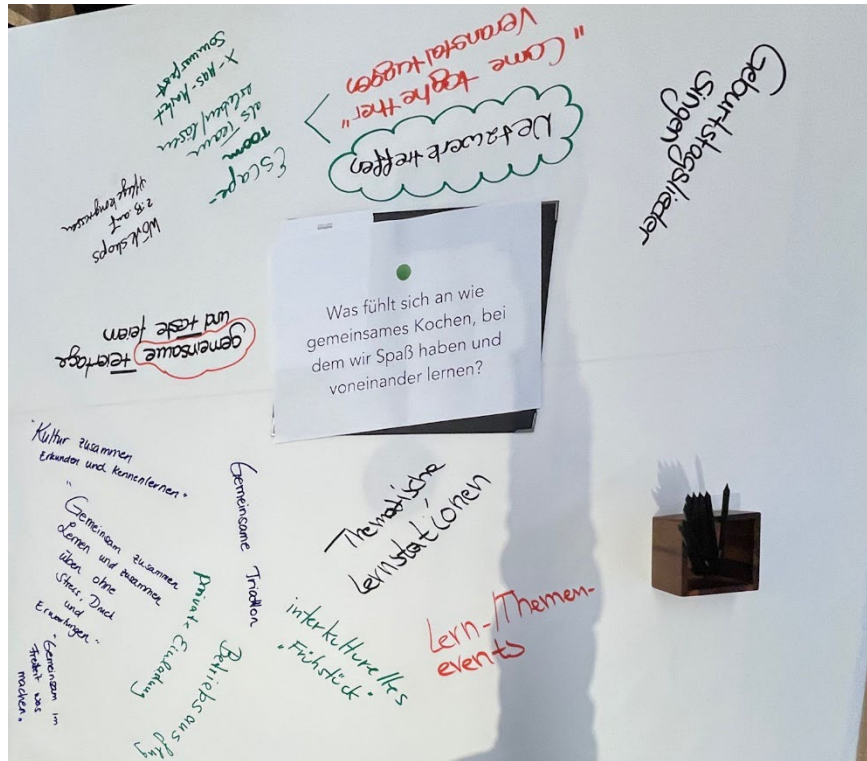 Was fühlt sich an wie
gemeinsames Kochen, bei
dem wir Spaß haben und
voneinander lernen?
Geburtstagslieder
singen
"Come toghether"
Veranstaltuggen
Netzwerktreffen
Escape-
room
als Team
erleben/lösen
X-Mas-Markt
Sommerfest
Workshops
z.B. auf
Pflegekongressen
gemeinsame Feiertage
und Feste feiern
"Kultur zusammen
Erkunden und Kennenlernen"
"Gemeinsam zusammen
Lernen und zusammen
üben ohne
Stress, Druck
und
Erwartungen"
"Gemeinsam im
Freizeit was
machen."
Gemeinsame Triatlon
private Einladung
Betriebsausflug
interkulturelles
"Frühstück"
Thematische
Lernstationen
Lern-/Themen-
events